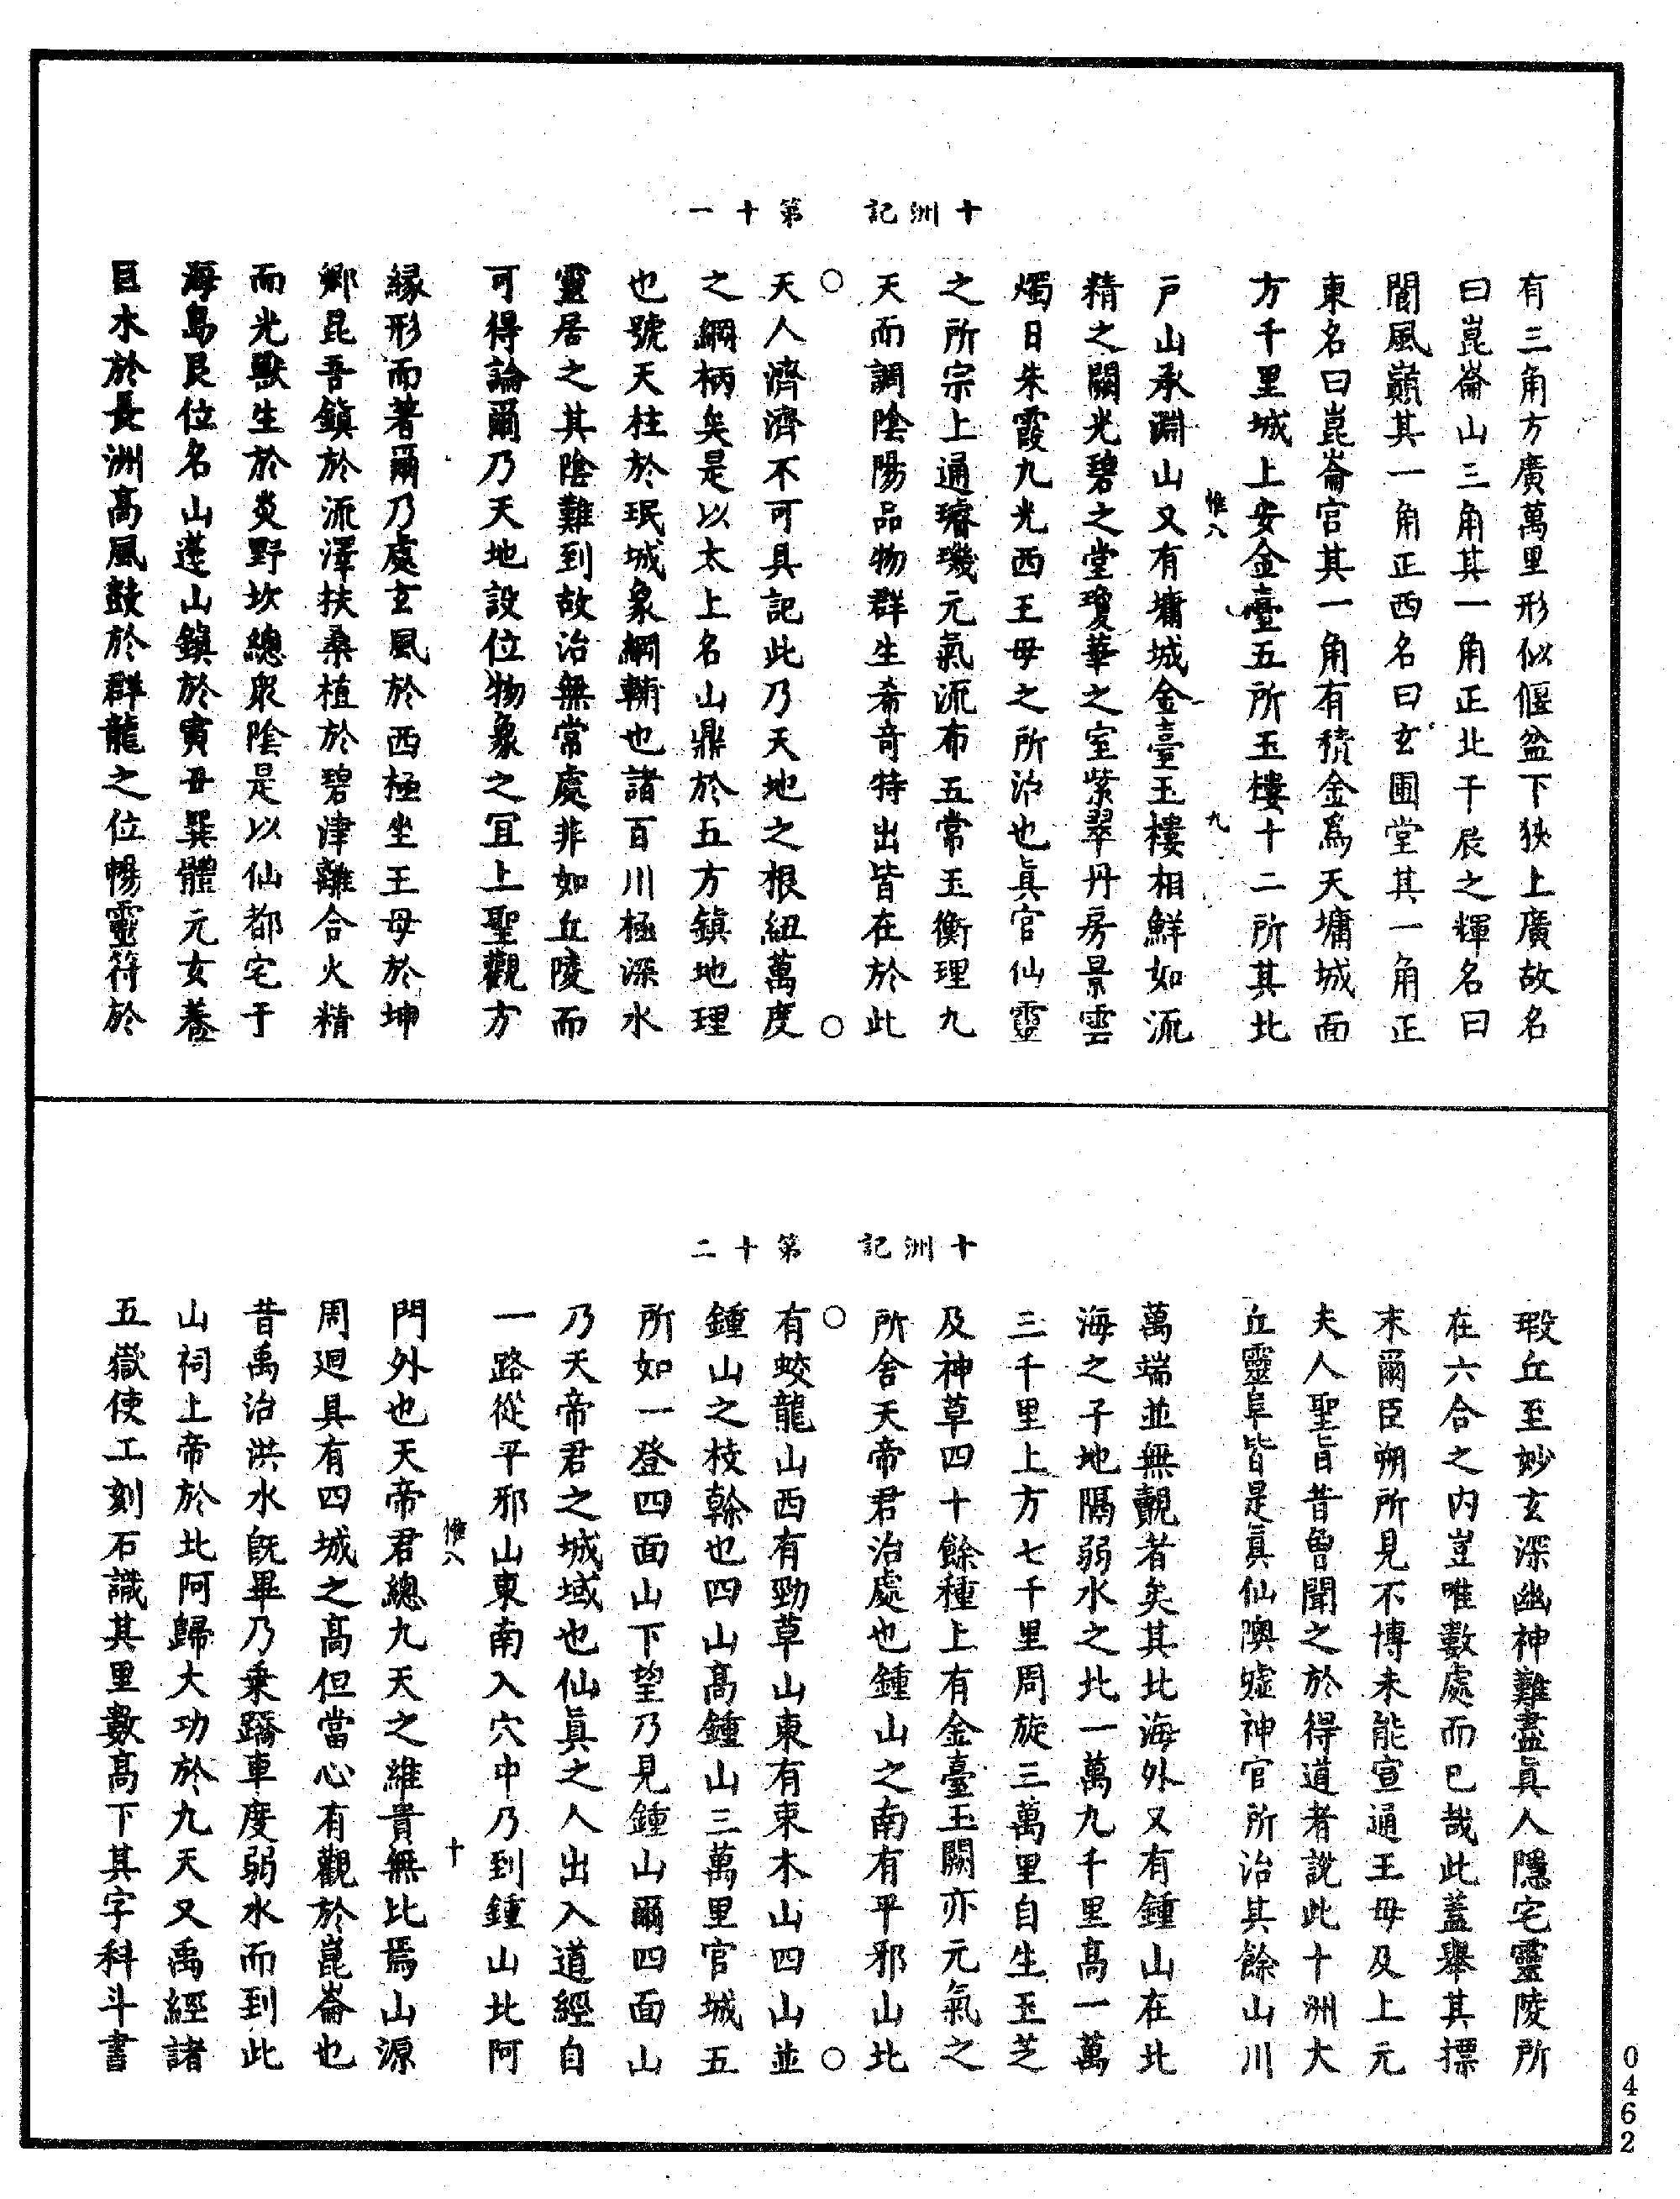 十洲記　第十一
有三角方廣萬里形似偃盆下狹上廣故名
曰崑崙山三角其一角正北干辰之輝名曰
閬風巔其一角正西名曰玄圃堂其一角正
東名曰崑崙宮其一角有積金爲天墉城面
方千里城上安金臺五所玉樓十二所其北
惟八　九
戶山承淵山又有墉城金臺玉樓相鮮如流
精之闕光碧之堂瓊華之室紫翠丹房景雲
燭日朱霞九光西王母之所治也眞官仙靈
之所宗上通璿璣元氣流布五常玉衡理九
天而調陰陽品物群生希奇特出皆在於此
天人濟濟不可具記此乃天地之根紐萬度
之綱柄矣是以太上名山鼎於五方鎮地理
也號天柱於珉城象綱輔也諸百川極深水
靈居之其陰難到故治無常處非如丘陵而
可得論爾乃天地設位物象之宜上聖觀方
緣形而著爾乃處玄風於西極坐王母於坤
鄉昆吾鎮於流澤扶桑植於碧津離合火精
而光獸生於炎野坎總眾陰是以仙都宅于
海島艮位名山蓬山鎮於寅丑巽體元女養
巨木於長洲高風鼓於群龍之位暢靈符於
十洲記　第十二
瑕丘至妙玄深幽神難盡眞人隱宅靈陵所
在六合之內豈唯數處而已哉此蓋舉其摽
末爾臣朔所見不博未能宣通王母及上元
夫人聖旨昔曾聞之於得道者說此十洲大
丘靈阜皆是眞仙隩墟神官所治其餘山川
萬端並無覿者矣其北海外又有鍾山在北
海之子地隔弱水之北一萬九千里高一萬
三千里上方七千里周旋三萬里自生玉芝
及神草四十餘種上有金臺玉闕亦元氣之
所舍天帝君治處也鍾山之南有平邪山北
有蛟龍山西有勁草山東有束木山四山並
鍾山之枝榦也四山高鍾山三萬里官城五
所如一登四面山下望乃見鍾山爾四面山
乃天帝君之城域也仙眞之人出入道經自
一路從平邪山東南入穴中乃到鍾山北阿
惟八　十
門外也天帝君總九天之維貴無比焉山源
周廻具有四城之高但當心有觀於崑崙也
昔禹治洪水旣畢乃乘蹻車度弱水而到此
山祠上帝於北阿歸大功於九天又禹經諸
五嶽使工刻石識其里數高下其字科斗書
0462